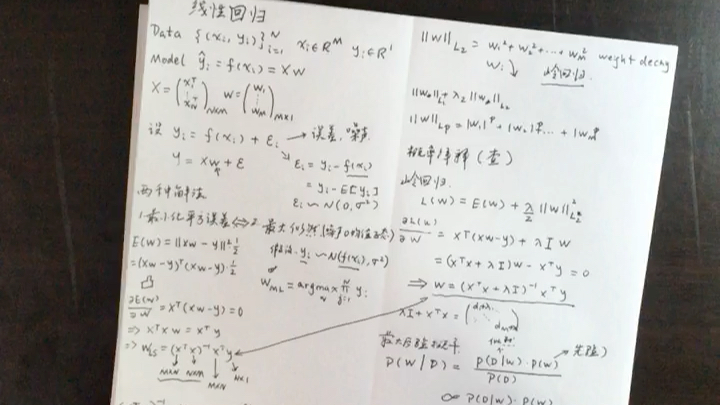 线性回归
Data {(xi, yi)}ᵢ₌₁ᴺ xi∈Rᴹ yi∈R¹
Model ŷi = f(xi) = XW
X = (x₁ᵀ ⋮ x_Nᵀ)N×M W = (W₁ ⋮ W_M)M×1
设 yi = f(xi) + εi → 误差,噪声
Y = XW + ε
εi = yi - f(xi)
= yi - E[yi]
εi ~ N(0, σ²)
两种解法
1.最小化平方误差 ⇔ 2.最大似然
E(W) = ||XW - y||²·½
= (XW-y)ᵀ(XW-y)·½
假设 yi ~ N(f(xi), σ²)
W_ML = argmax_w ∏ᵢ₌₁ᴺ yi
∂E(W)/∂W = Xᵀ(XW-y) = 0
⇒ XᵀXW = Xᵀy
⇒ W_LS = (XᵀX)⁻¹Xᵀy
M×N N×M M×N N×1
||W||_L₂ = W₁² + W₂² + ... + W_M² weight decay
Wi 岭回归.
||W||_Lp = |W₁|ᵖ + |W₂|ᵖ... + |W_M|ᵖ
概率解释(查)
岭回归.
L(W) = E(W) + λ/2 ||W||²_L₂
∂L(W)/∂W = Xᵀ(XW-y) + λIW
= (XᵀX + λI)W - Xᵀy = 0
⇒ W = (XᵀX + λI)⁻¹Xᵀy
λI + XᵀX =
最大后验概率
P(W|D) = P(D|W)·P(W) / P(D) → 先验)
∝ P(D|W)·P(W)